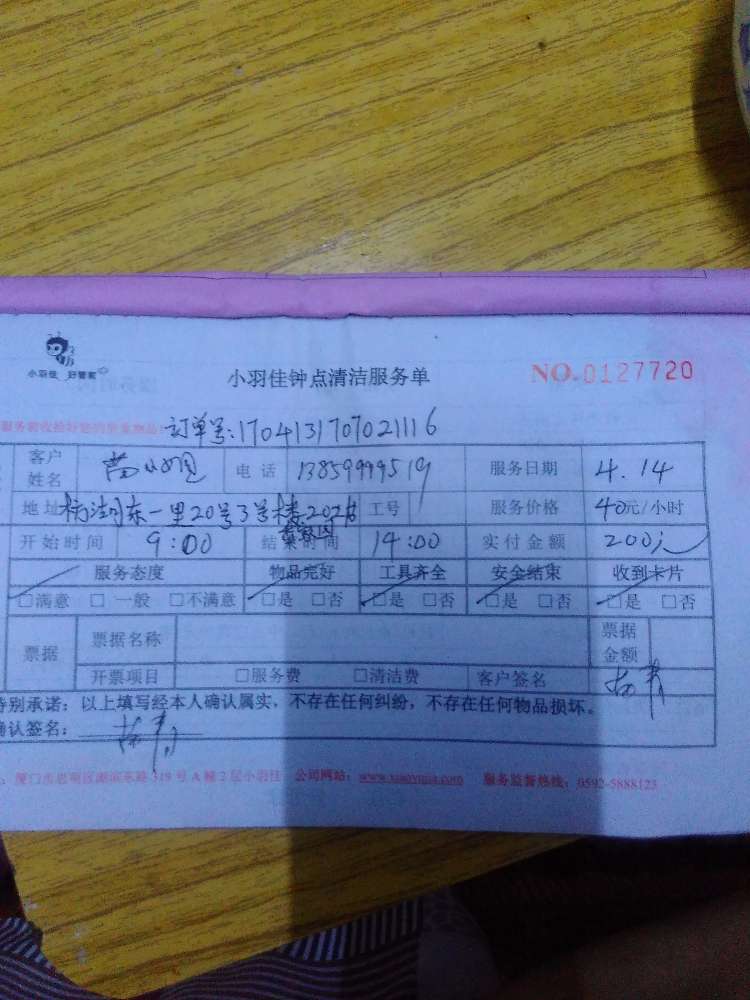 小羽佳 好管家
小羽佳钟点清洁服务单
NO.0127720
订单号:1704131707021116
客户姓名 电话 13859999519 服务日期 4.14
地址 东一里20号3号楼202 工号 服务价格 40元/小时
开始时间 9:00 结束时间 14:00 实付金额 200元
服务态度 物品完好 工具齐全 安全结束 收到卡片
□满意 □一般 □不满意 □是 □否 □是 □否 □是 □否 □是 □否
票据 票据名称 票据金额
开票项目 □服务费 □清洁费 客户签名
特别承诺：以上填写经本人确认属实，不存在任何纠纷，不存在任何物品损坏。
确认签名：
厦门市思明区湖滨东路319号A幢2层小羽佳 公司网站：www.xiaoyujia.com 服务监督热线：0592-5888123